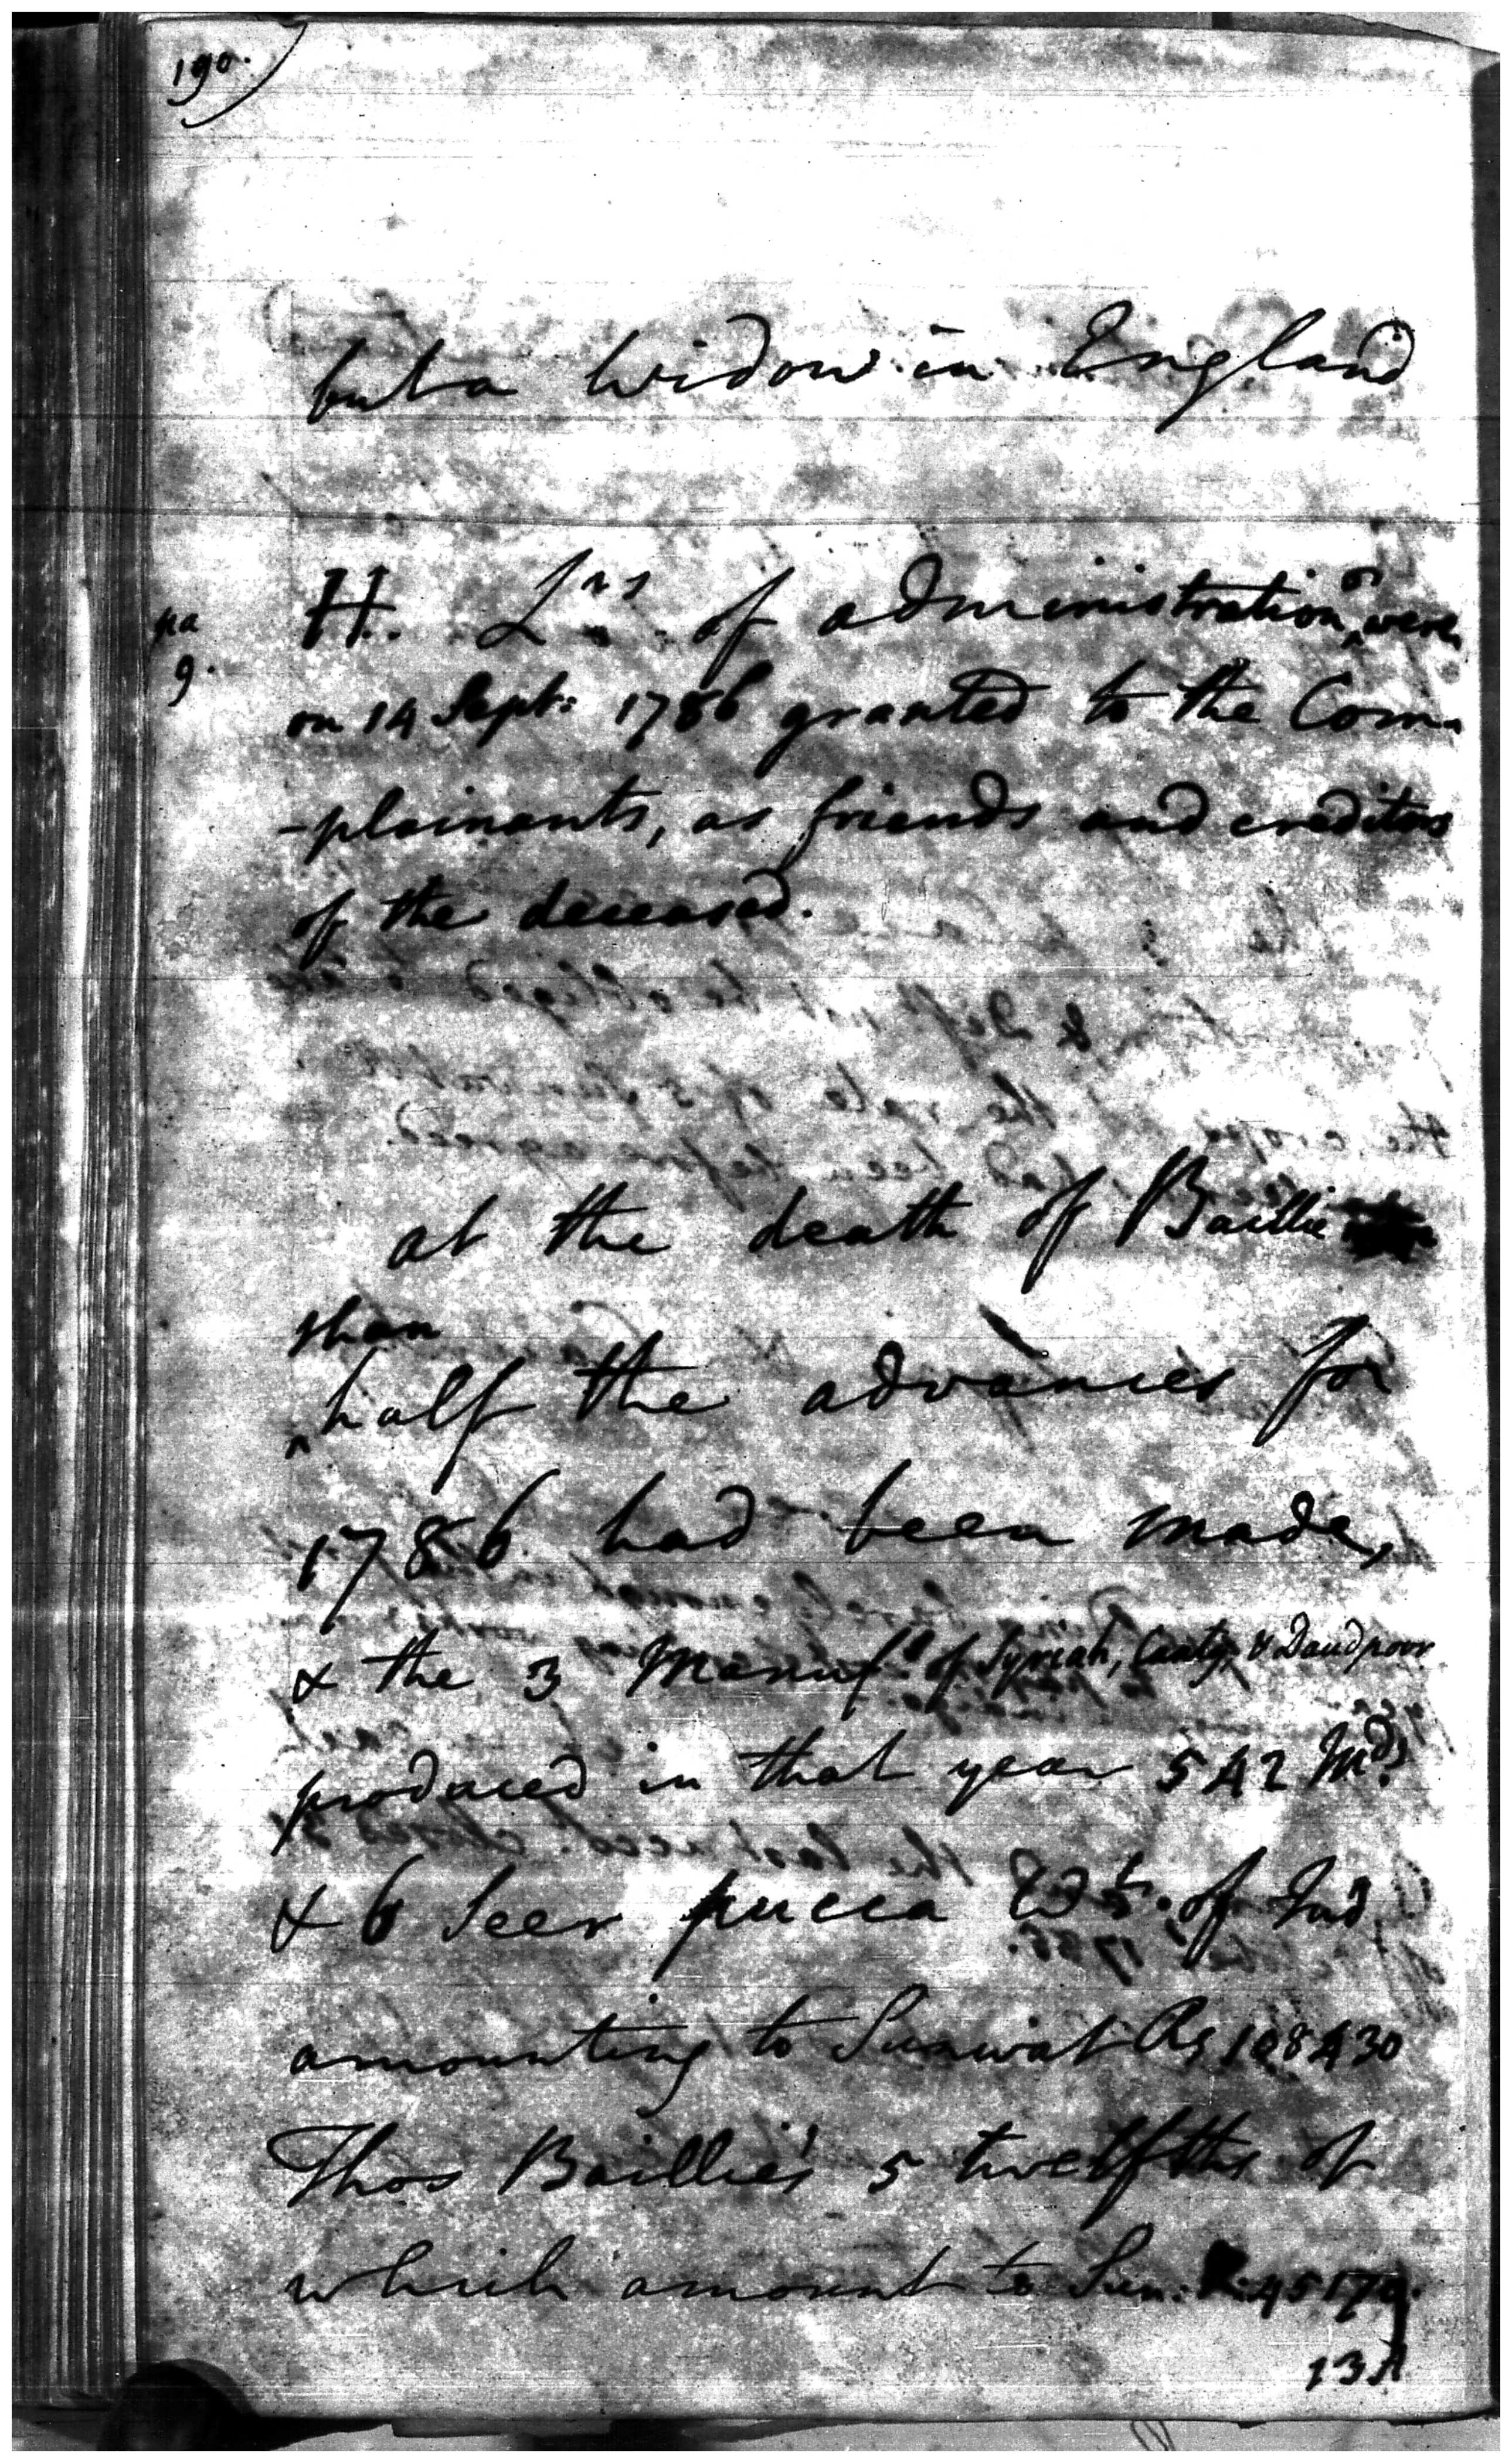 190.
but a widow in England
pa 9.
H. Lrs of administration were
on 14 Sept: 1786 granted to the Com-
-plainants, as friends and creditors
of the deceased.
at the death of Baillie
than
half the advances for
1786 had been made,
& the 3 Manufs of Syreah, Canty, & Daudpoor
produced in that year 542 Mds
& 6 Seer pucca Wt. of Ind
amounting to Sunwat Rs 108430
Thos Baillie's 5 twelfths of
which amount to Sun: R: 45179.
13A